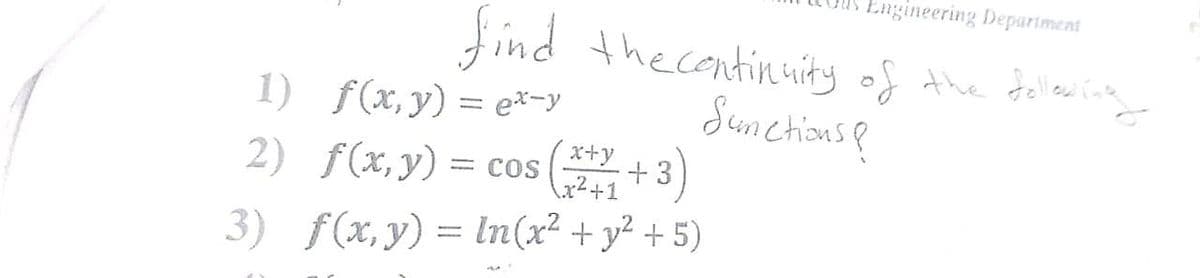 Engineering Department
find the continuity of the following
functions?
1) f(x, y) = e^{x-y}
2) f(x, y) = cos((x+y)/(x²+1) + 3)
3) f(x, y) = ln(x² + y² + 5)